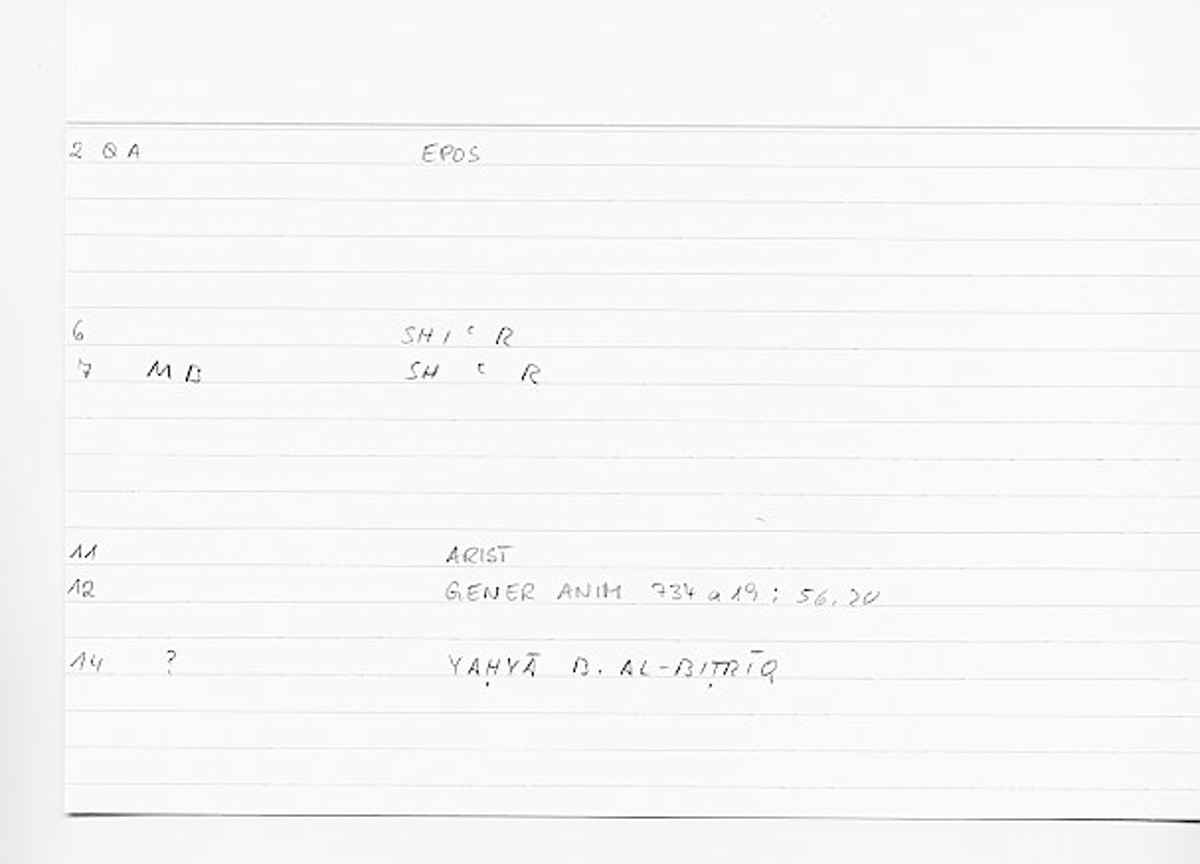 2 Q A EPOS
6 SH I ʿ R
7 M B SH ʿ R
11 ARIST
12 GENER ANIM 734 a 19 ; 56.20
14 ? YAḤYĀ B. AL-BIṬRĪQ